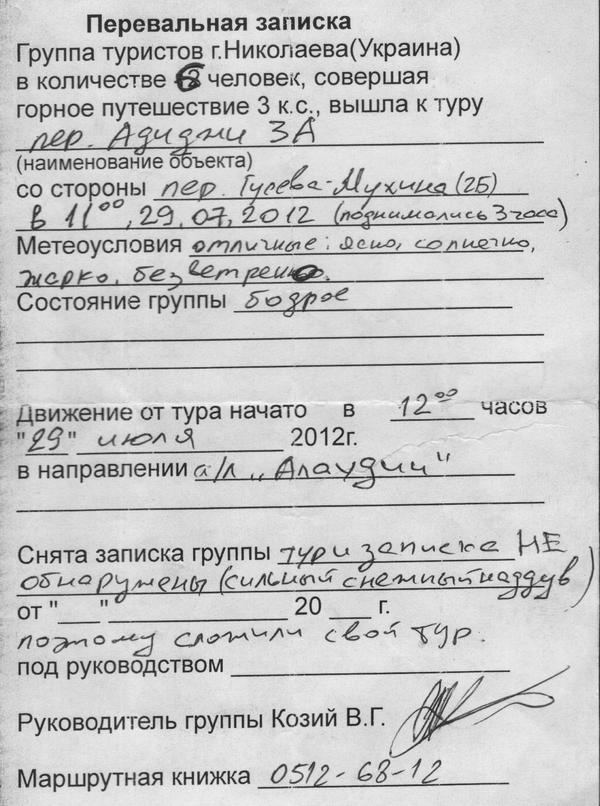 Перевальная записка
Группа туристов г.Николаева(Украина)
в количестве 6 человек, совершая
горное путешествие 3 к.с., вышла к туру
пер. Адиджи 3А
(наименование объекта)
со стороны пер. Гусева-Мухина (2Б)
в 11⁰⁰, 29.07.2012 (поднимались 3 часа)
Метеоусловия отличные: ясно, солнечно,
жарко, безветренно.
Состояние группы бодрое
Движение от тура начато в 12⁰⁰ часов
"29" июля 2012г.
в направлении а/л „Алаудин"
Снята записка группы тур и записка НЕ
обнаружены (сильный снежный наддув)
от "___" ____________ 20 ___ г.
поэтому сложили свой тур.
под руководством
Руководитель группы Козий В.Г.
Маршрутная книжка 0512-68-12